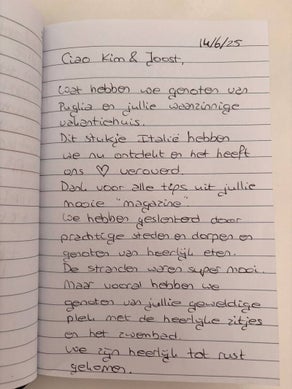 14/6/25
Ciao Kim & Joost,
Wat hebben we genoten van
Puglia en jullie waanzinnige
vakantiehuis.
Dit stukje Italië hebben
we nu ontdekt en het heeft
ons ♡ veroverd.
Dank voor alle tips uit jullie
mooie "magazine".
We hebben geslenterd door
prachtige steden en dorpen en
genoten van heerlijk eten.
De stranden waren super mooi.
Maar vooral hebben we
genoten van jullie geweldige
plek met de heerlijke zitjes
en het zwembad.
We zijn heerlijk tot rust
gekomen.